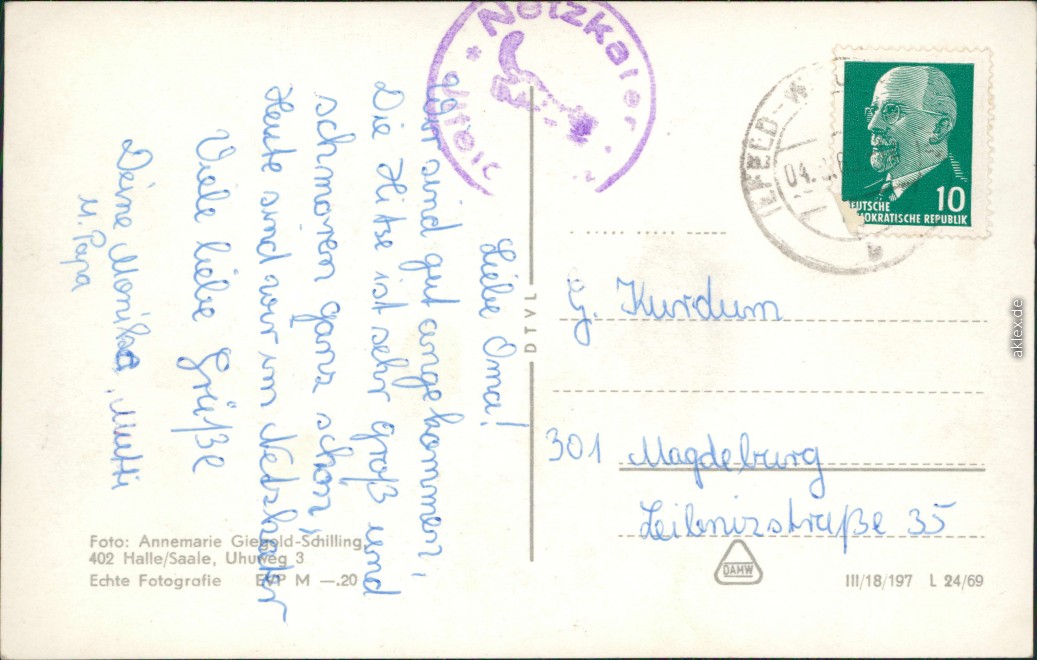 Liebe Oma!
Wir sind gut angekommen,
Die Hitze ist sehr groß und
schmoren ganz schön,
Heute sind wir im Netzkater
Viele liebe Grüße
Deine Monika, Mutti
u. Papa
Netzkater
ILFELD-W
04.
10
DEUTSCHE
DEMOKRATISCHE REPUBLIK
DTVL
Kurdum
301 Magdeburg
Leibnizstraße 35
Foto: Annemarie Giegold-Schilling,
402 Halle/Saale, Uhuweg 3
Echte Fotografie EVP M —.20
DAMW
III/18/197 L 24/69
aklex.de